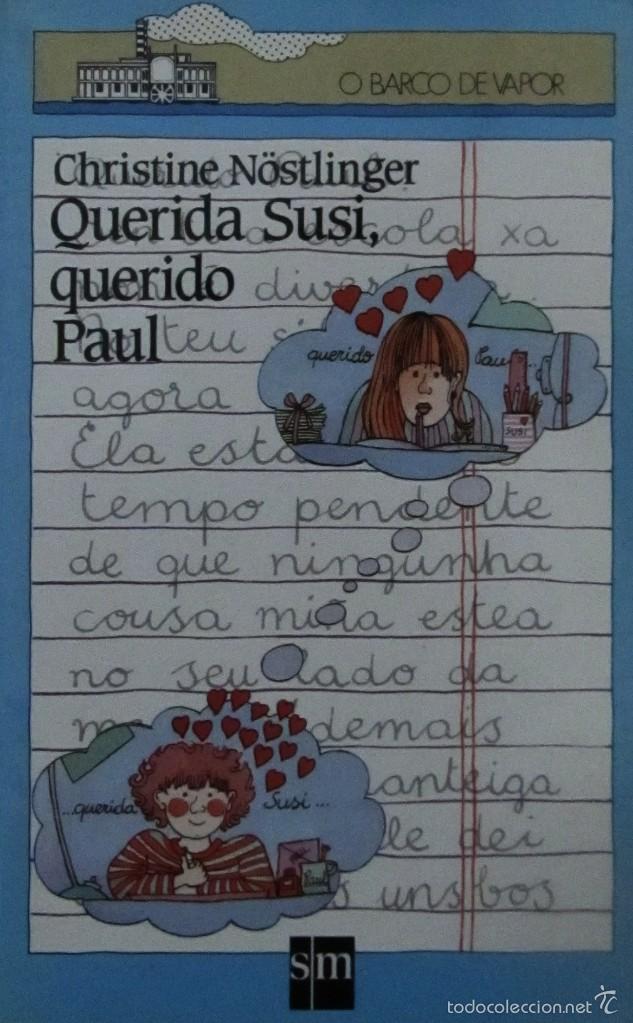 O BARCO DE VAPOR
Christine Nöstlinger
Querida Susi,
querido
Paul
ola xa
diver
teu
agora
Ela está
tempo pendente
de que ningunha
cousa miña estea
no seu lado da
demais
anteiga
lle dei
uns bos
querido Paul
SUSI
...querida Susi...
Paul
sm
todocoleccion.net